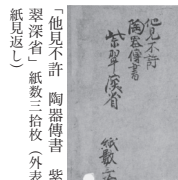 「他見不許　陶器傳書　紫
翠深省」紙数三拾枚（外表
紙見返し）
他見不許
陶器傳書
紫翠深省
紙數三拾